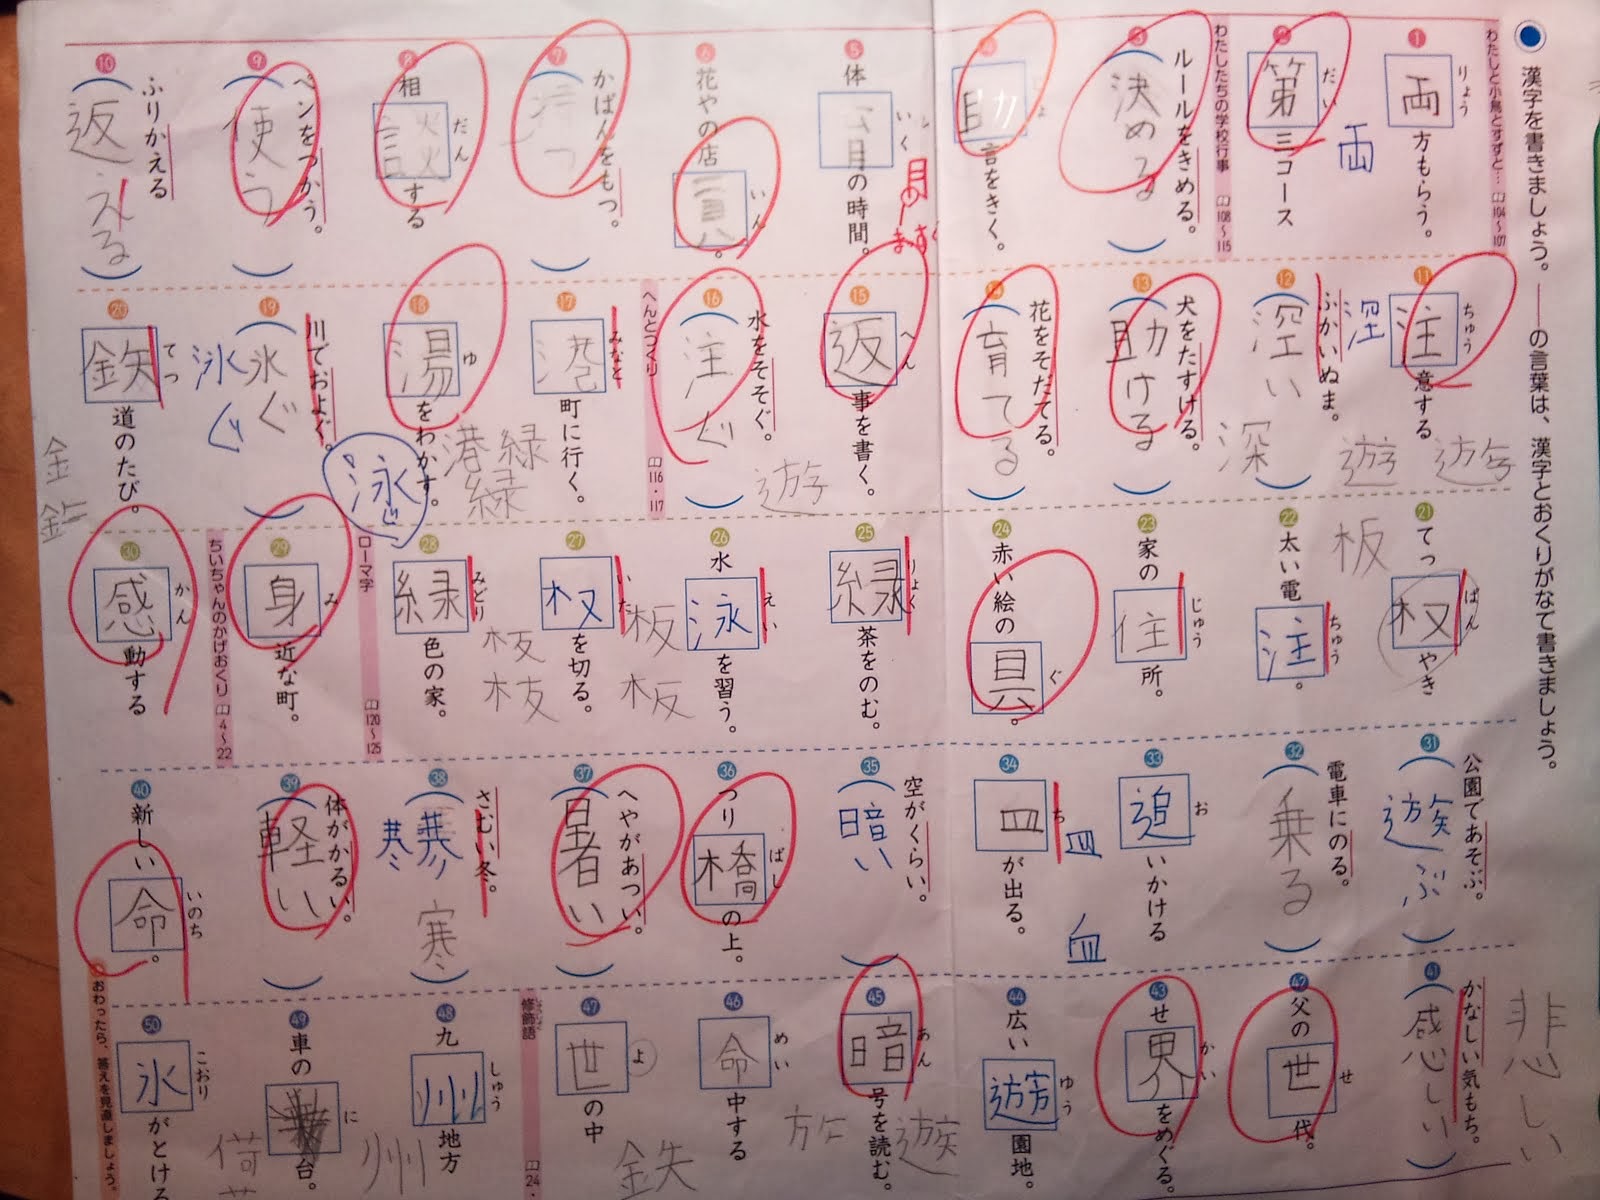 漢字を書きましょう。――の言葉は、漢字とおくりがなで書きましょう。
わたしと小鳥とすずと… 104〜107
1 両 りょう 方もらう。
両
2 第 だい 三コース
わたしたちの学校行事 108〜115
3 ルールをきめる。 (決める)
4 助 じょ 言をきく。
5 体 育 いく の時間。
6 花やの店 員 いん 。
7 かばんをもつ。 (持つ)
8 相 談 だん する
9 ペンをつかう。 (使う)
10 ふりかえる (返える)
11 注 ちゅう 意する
12 ふかいぬま。
深
13 犬をたすける。 (助ける)
14 花をそだてる。 (育てる)
15 返 へん 事を書く。
16 水をそそぐ。 (注ぐ)
遊
へんとつくり 116・117
17 みなと 町に行く。
港 緑
緑
18 湯 ゆ をわかす。
19 川でおよぐ。 (氷ぐ)
泳ぐ
泳
20 てつ 道のたび。
金
21 てっ ばん やき
板
22 太い電 注 ちゅう 。
23 家の 住 じゅう 所。
24 赤い絵の 具 ぐ 。
25 緑 りょく 茶をのむ。
26 水 泳 えい を習う。
27 いた を切る。
板
板
28 緑 みどり 色の家。
ローマ字 120〜125
29 身 み 近な町。
ちいちゃんのかげおくり 4〜22
30 感 かん 動する
31 公園であそぶ。
32 電車にのる。 (乗る)
33 追 お いかける
34 皿 ち が出る。
血
血
35 空がくらい。 (暗い)
36 つり 橋 ばし の上。
37 へやがあつい。 (暑い)
38 さむい冬。
寒
39 体がかるい。 (軽い)
40 新しい 命 いのち 。
41 かなしい気もち。 (感しい)
悲しい
42 父の 世 せ 代。
43 せ 界 かい をめぐる。
44 広い ゆう 園地。
45 暗 あん 号を読む。
遊
46 命 めい 中する
47 世 よ の中
鉄
修飾語 24・
48 九 州 しゅう 地方
州
49 車の に 台。
荷
50 氷 こおり がとける
おわったら、答えを見直しましょう。